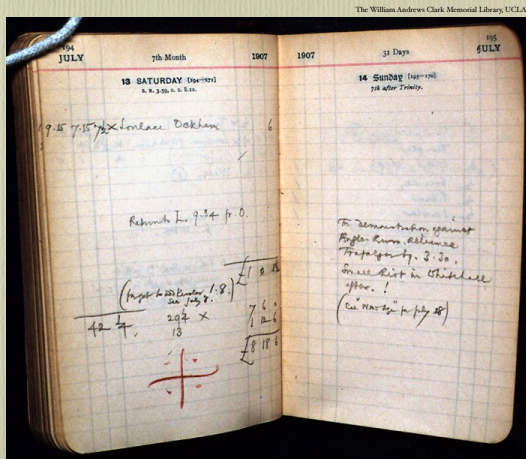 The William Andrews Clark Memorial Library, UCLA
194
JULY 7th Month 1907
13 SATURDAY [194—171]
S. R. 3.59, S. S. 8.12.
9.35 7.35 7½ × Lovelace Ockham 6
Returned L. 9.34 fr. O.
£1
(forgot to add 1.8.)
see July 8.
42 ¼ 29¼ × 7 6
13 1 12 6
£8 18 6
195
1907 31 Days JULY
14 Sunday [195—170]
7th after Trinity.
To Demonstration against
Anglo-Russ. Alliance
Trafalgar Sq. 3.30.
Small Riot in Whitehall
after. !
(See "New Age" for July 18)